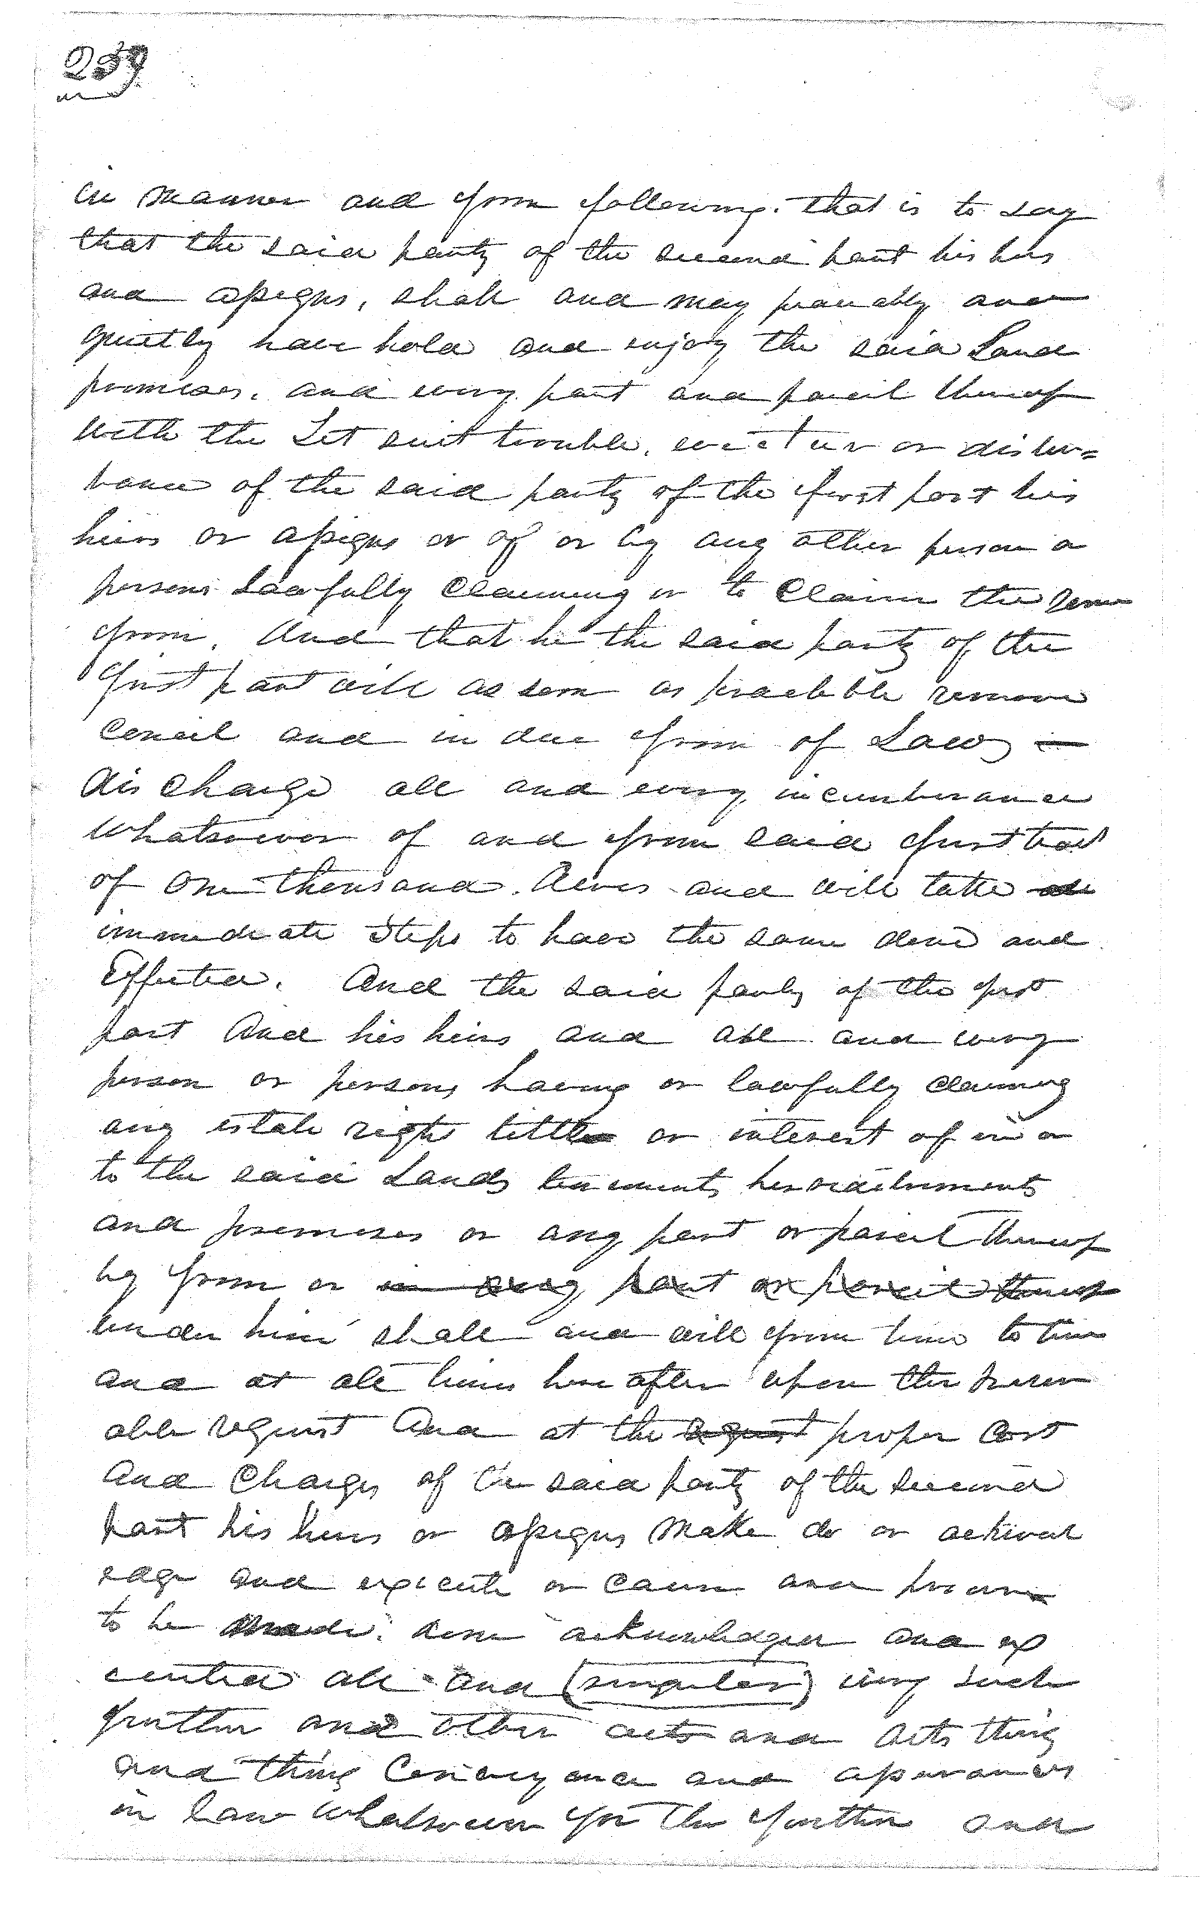 239
in manner and form following. that is to say
that the said party of the second part his heirs
and assigns, shall and may peaceably and
quietly have hold and enjoy the said Land
premises. and every part and parcel thereof
With the Let suit trouble. eviction or distur=
bance of the said party of the first part his
heirs or assigns or of or by any other person or
persons Lawfully Claiming or to Claim the same
from. And that he the said party of the
first part will as soon as practible remove
Cancil and in due form of Law
discharge all and every incumberance
Whatsoever of and from said first tract
of One thousand Acres and will take
immediate Steps to have the same done and
Effected. And the said party of the first
part And his heirs and all and every
person or persons having or lawfully claiming
any estate right tittle or interest of in or
to the said Lands tenements heriditements
and premises or any part or parcel thereof
by from or in any part or parcel thereof
under him shall and will from time to time
and at all times here after upon the reason
able request And at the request proper Cost
And Charges of the said party of the second
part his heirs or assigns Make do or acknowl
edge and execute or Cause and procure
to be made. done acknowledged and ex
ecuted all and (singular) every such
further and other acts and acts thing
and thing Conveyance and assurances
in Law Whatsoever for the further and